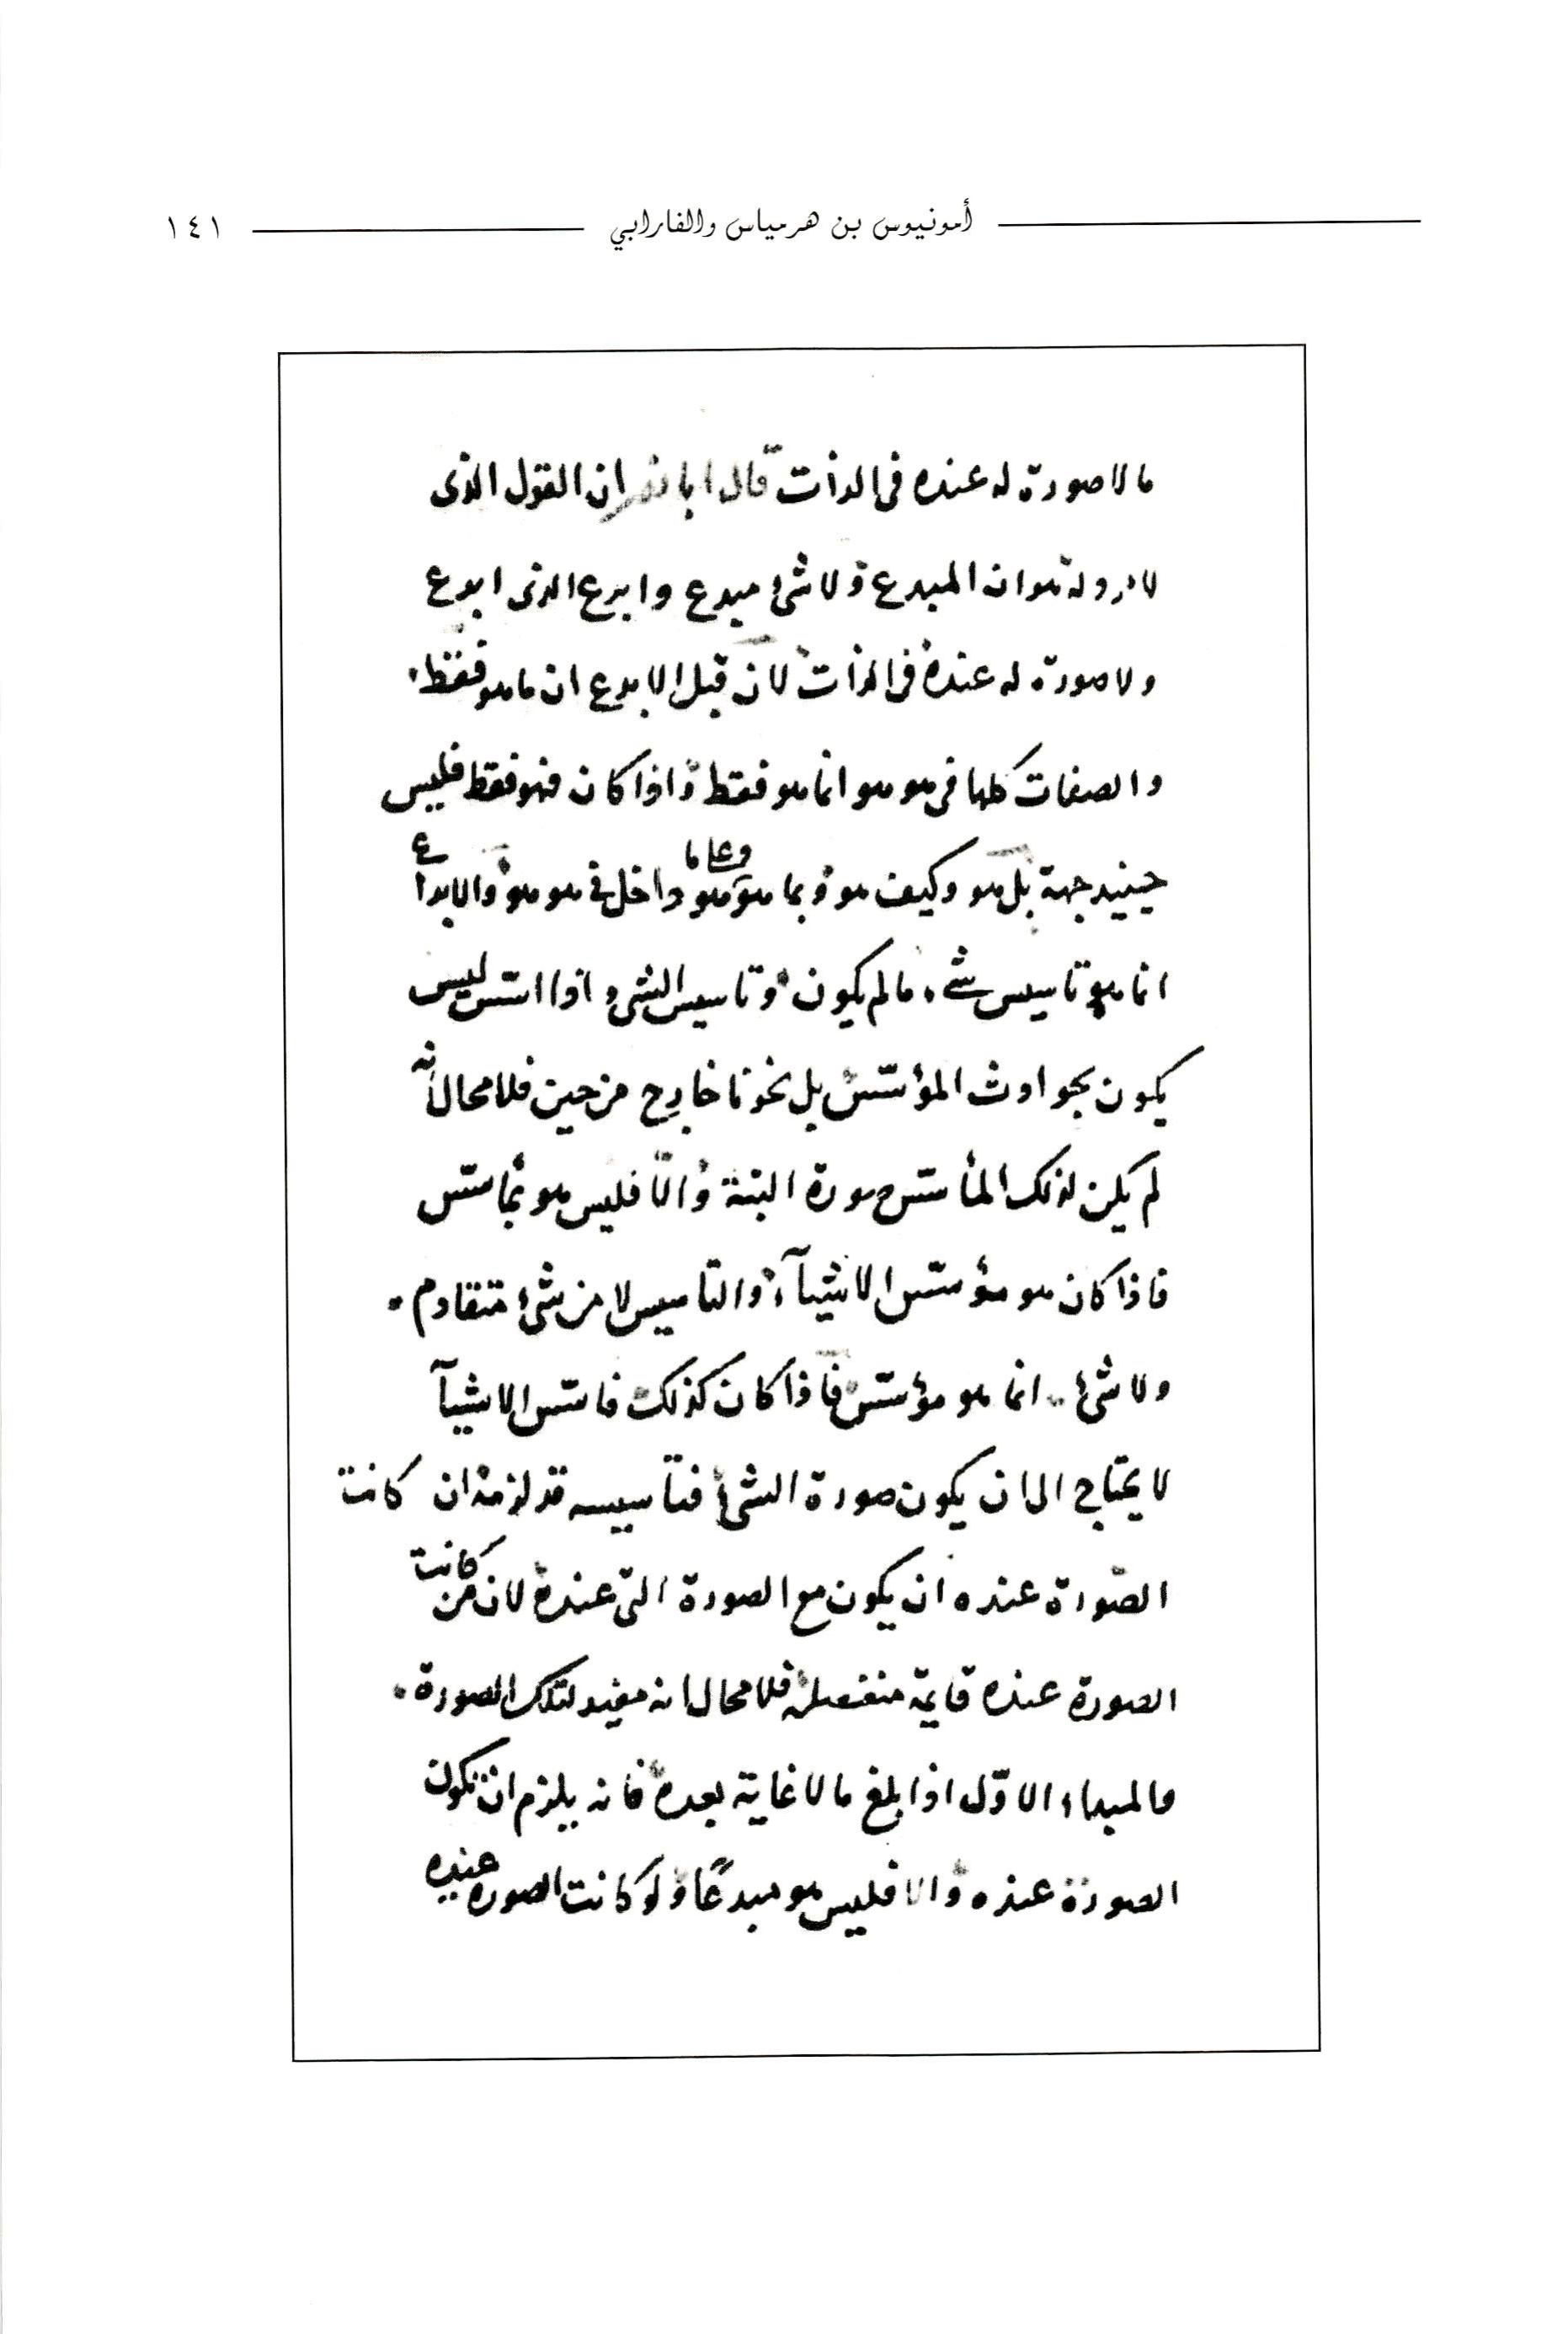 أمونيوس بن هرمياس والفارابي ١٤١
ما لا صورة له عنده فى الذات قال ان القول الذى
لا هو ان المبدع ولا شئ مبدع وابدع الذى ابدع
ولا صورة له عنده فى الذات لان قبل الابدع ان ما هو فقط
والصفات كلها فى هو هو انما هو فقط واذا كان فهو فقط فليس
حينيد جهة بل هو وكيف هو وبما هو وعلى ما هو داخل فى هو هو والابداع
انما هو تاسيس شئ ما لم يكون وتاسيس الشئ اذا اسس ليس
يكون المؤسس بل خارج من حين فلا محال انه
لم يكن لذلك المأسس صورة البتة والّا فليس هو
فاذا كان هو مؤسس الاشيآء والتاسيس لا من شئ متقادم
ولا شئ انما هو مؤسس فاذا كان كذلك فاسس الاشيآ
لا يحتاج الى ان يكون صورة الشئ فتأسيسه قد ان كانت
الصّورة عنده ان يكون مع الصورة التى عنده لان من كانت
الصورة عنده قايمة منفصلة فلا محال انه مفيد لتلك الصورة
فالمبداء الاوّل اذا بلغ ما لا غاية بعده فانه يلزم ان تكون
الصورة عنده والا فليس هو مبدعًا ولو كانت الصورة عنده